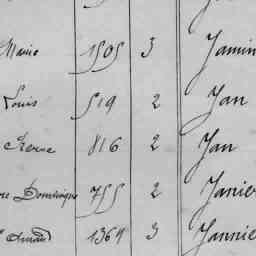 Marie 1505 3 Jamin
Louis 519 2 Jan
Pierre 816 2 Jan
Dominique 755 2 Janier
1369 3 Jannie